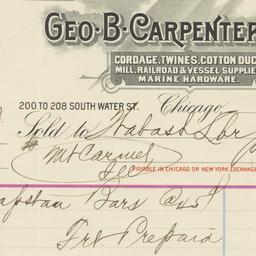 GEO·B·CARPENTER
CORDAGE, TWINES, COTTON DUC
MILL, RAILROAD & VESSEL SUPPLIE
MARINE HARDWARE.
200 TO 208 SOUTH WATER ST. Chicago
Sold to Wabash
Mt Carmel
Ill
PAYABLE IN CHICAGO OR NEW YORK EXCHANGE
apstan Bars @ 45
Frt Prepaid